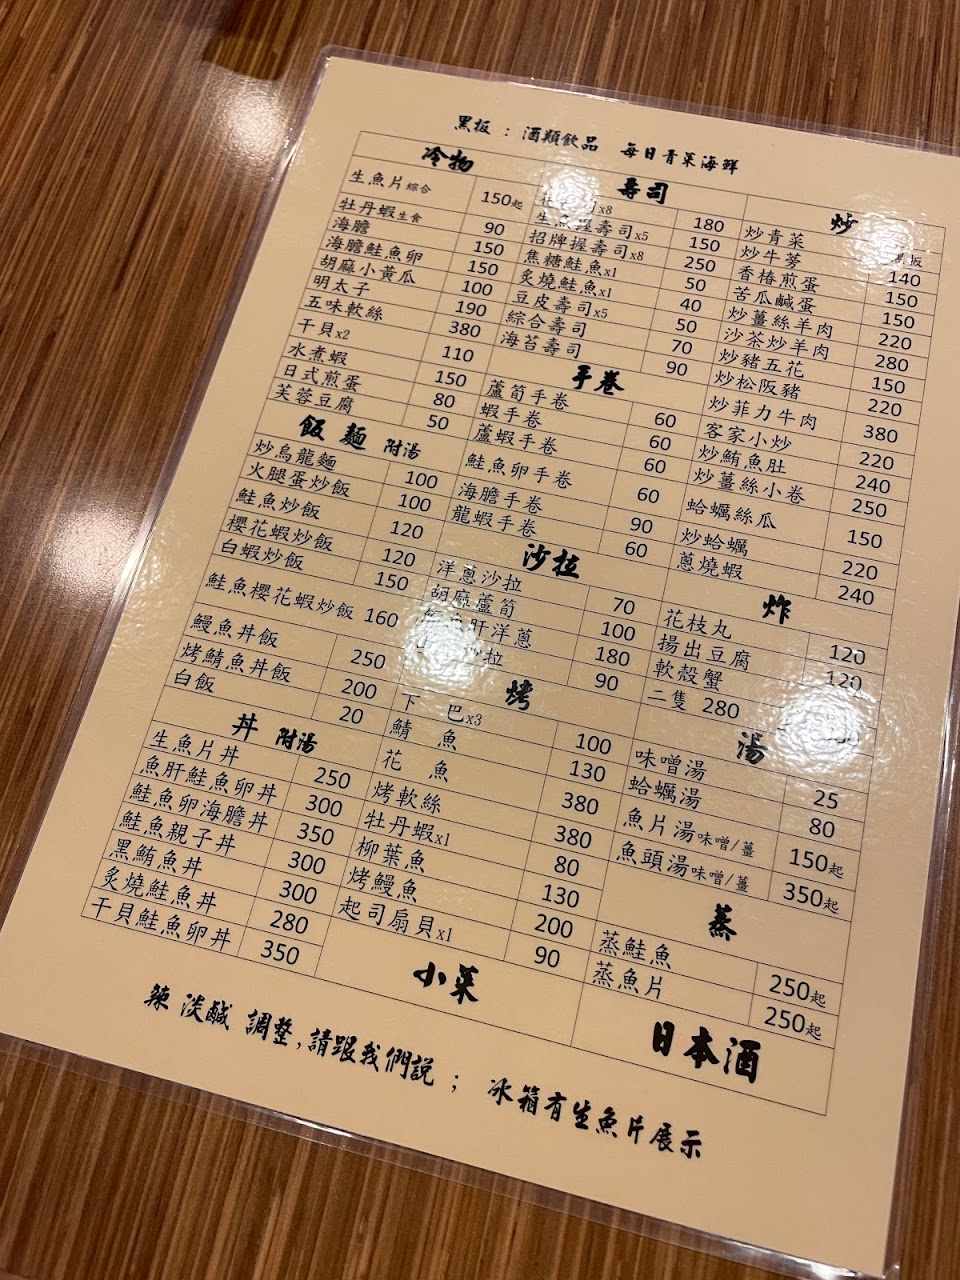 黑板 : 酒類飲品 每日青菜海鮮
冷物
生魚片綜合 150起
牡丹蝦生食 90
海膽 150
海膽鮭魚卵 150
胡麻小黃瓜 100
明太子 190
五味軟絲 380
干貝x2 110
水煮蝦 150
日式煎蛋 80
芙蓉豆腐 50
飯 麵 附湯
炒烏龍麵 100
火腿蛋炒飯 100
鮭魚炒飯 120
櫻花蝦炒飯 120
白蝦炒飯 150
鮭魚櫻花蝦炒飯 160
鰻魚丼飯 250
烤鯖魚丼飯 200
白飯 20
丼 附湯
生魚片丼 250
魚肝鮭魚卵丼 300
鮭魚卵海膽丼 350
鮭魚親子丼 300
黑鮪魚丼 300
炙燒鮭魚丼 280
干貝鮭魚卵丼 350
壽司
司x8 180
生魚握壽司x5 150
招牌握壽司x8 250
焦糖鮭魚x1 50
炙燒鮭魚x1 40
豆皮壽司x5 50
綜合壽司 70
海苔壽司 90
手卷
蘆筍手卷 60
蝦手卷 60
蘆蝦手卷 60
鮭魚卵手卷 60
海膽手卷 90
龍蝦手卷 60
沙拉
洋蔥沙拉 70
胡麻蘆筍 100
肝洋蔥 180
沙拉 90
烤
下 巴x3 100
鯖 魚 130
花 魚 380
烤軟絲 380
牡丹蝦x1 80
柳葉魚 130
烤鰻魚 200
起司扇貝x1 90
小菜
炒
炒青菜 黑板
炒牛蒡 140
香椿煎蛋 150
苦瓜鹹蛋 150
炒薑絲羊肉 220
沙茶炒羊肉 280
炒豬五花 150
炒松阪豬 220
炒菲力牛肉 380
客家小炒 220
炒鮪魚肚 240
炒薑絲小卷 250
蛤蠣絲瓜 150
炒蛤蠣 220
蔥燒蝦 240
炸
花枝丸 120
揚出豆腐 120
軟殼蟹
二隻 280
湯
味噌湯 25
蛤蠣湯 80
魚片湯味噌/薑 150起
魚頭湯味噌/薑 350起
蒸
蒸鮭魚 250起
蒸魚片 250起
日本酒
辣 淡鹹 調整,請跟我們說 ; 冰箱有生魚片展示